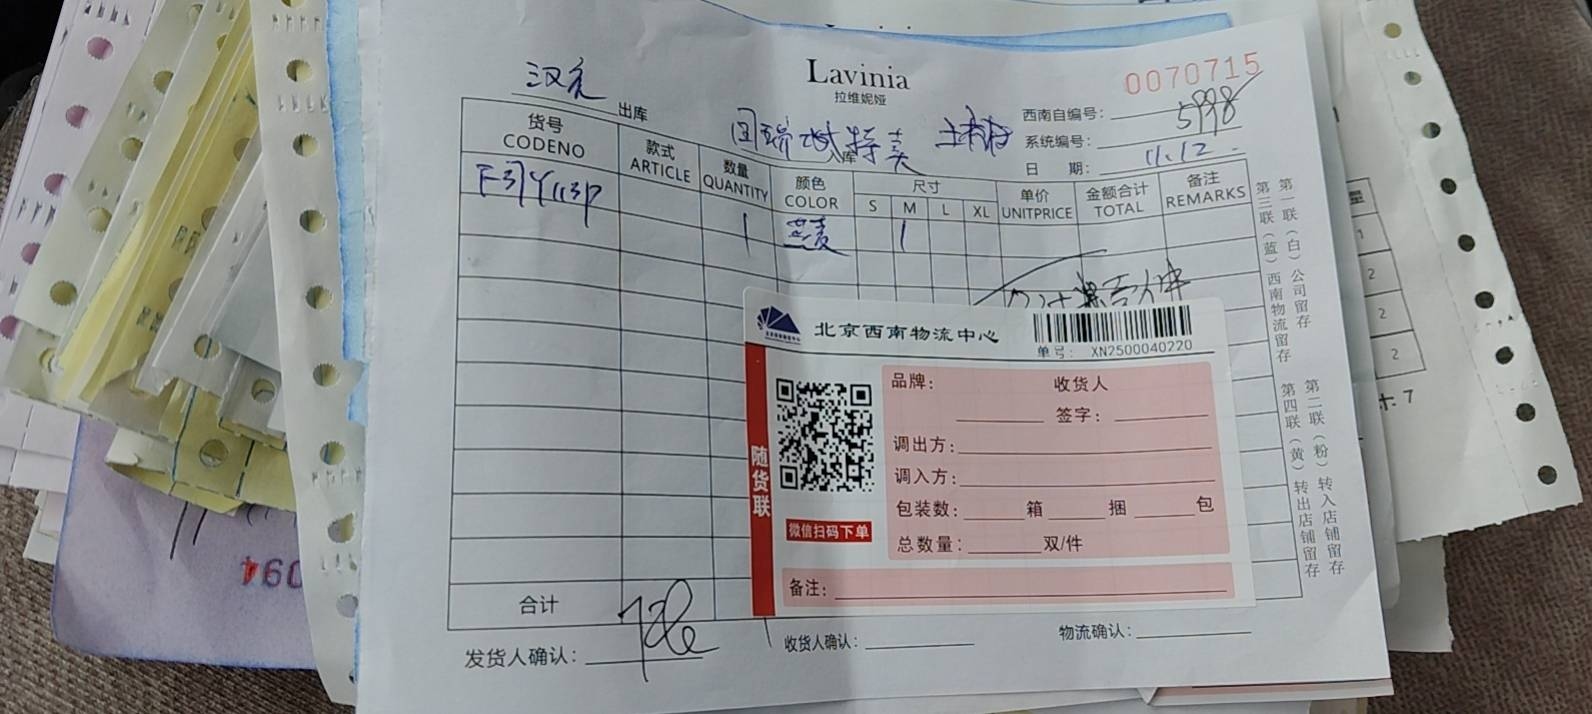 Lavinia
拉维妮娅
0070715
汉光 出库
特卖 入库
西南自编号: 5998
系统编号:
日 期: 11.12.
货号 款式 数量 颜色 尺寸 单价 金额合计 备注
CODENO ARTICLE QUANTITY COLOR S M L XL UNITPRICE TOTAL REMARKS
F3JY113P 1 1
北京西南物流中心
单号: XN2500040220
随货联
微信扫码下单
品牌: 收货人
签字:
调出方:
调入方:
包装数: 箱 捆 包
总数量: 双/件
备注:
合计
发货人确认:
收货人确认:
物流确认:
第一联(白)公司留存
第三联(蓝)西南物流留存
第二联(粉)转入店铺留存
第四联(黄)转出店铺留存
量
1
2
2
2
7